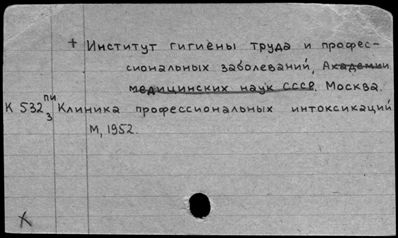 + Институт гигиены труда и профес-
сиональных заболеваний, Академии
медицинских наук СССР. Москва.
К 532 пи 3 Клиника профессиональных интоксикаций
М, 1952.